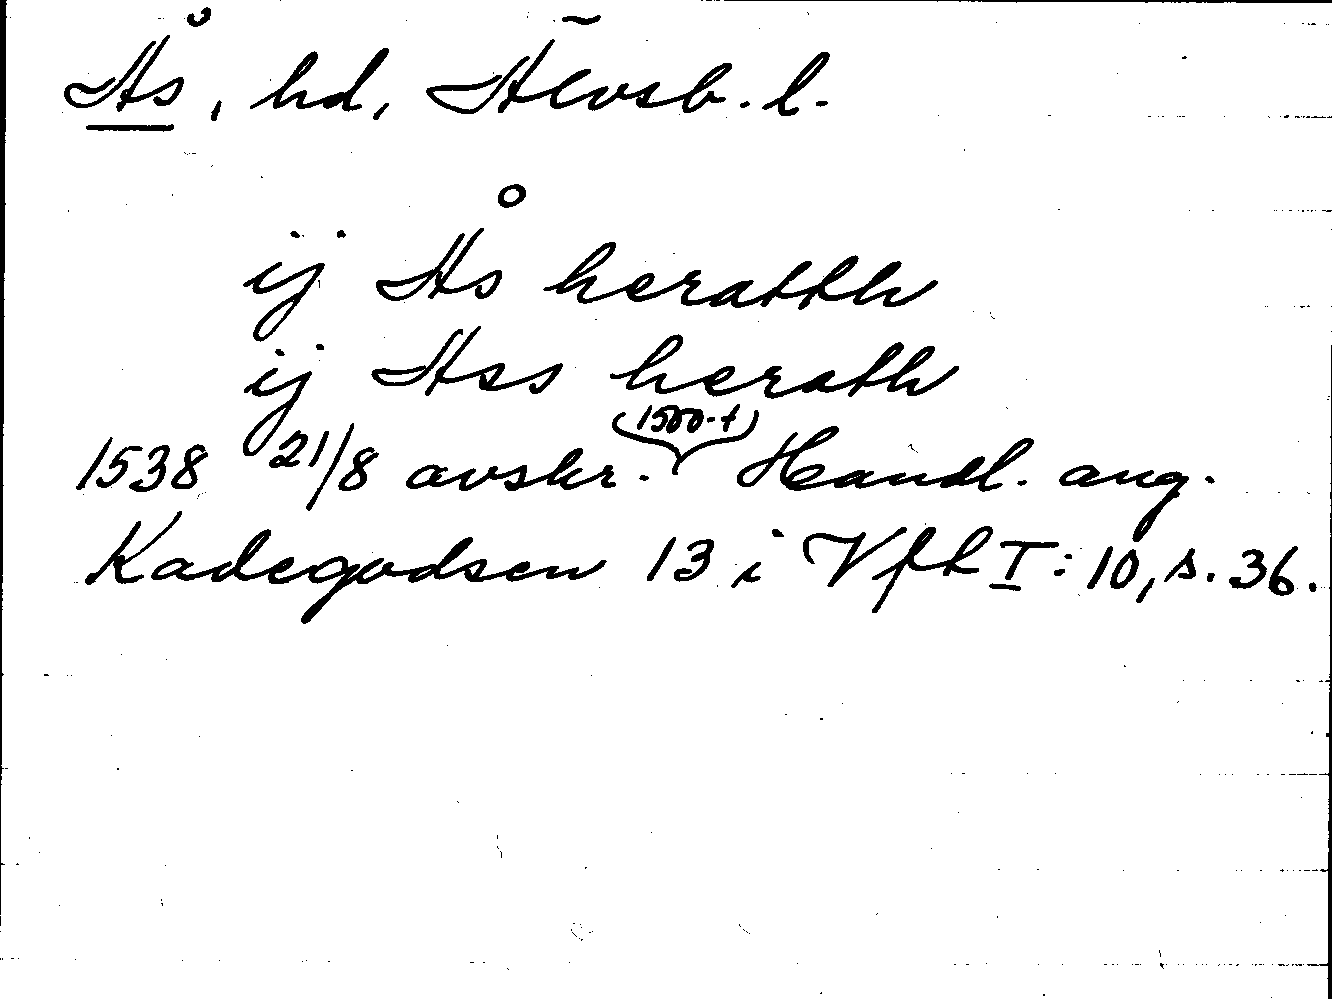 Ås, hd, Älvsb. l.
ij Ås heratth
ij Ass herath
(1500-t)
1538 21/8 avskr. Handl. ang.
Kadegodsen 13 i VfL I: 10, s. 36.